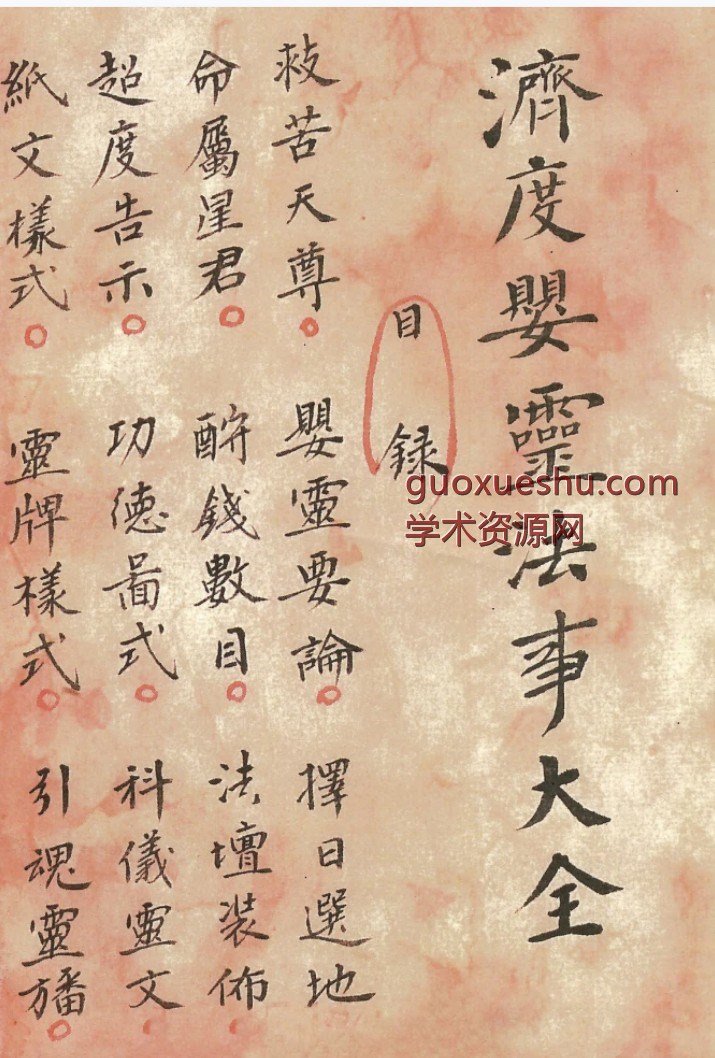 濟度嬰靈法事大全
目録
救苦天尊
嬰靈要論
擇日選地
命屬星君
酧錢數目
法壇装佈
超度告示
功德啚式
科儀靈文
紙文樣式
靈牌樣式
引魂靈旛
guoxueshu.com
学术资源网